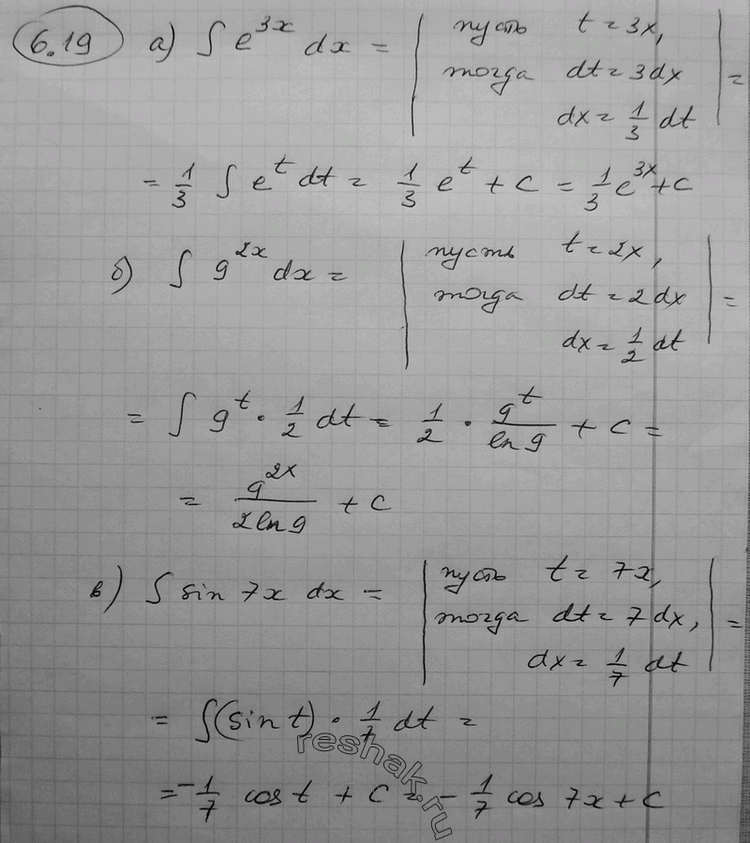 6.19 а) ∫ e^{3x} dx = | пусть t = 3x,
тогда dt = 3dx | =
dx = 1/3 dt
= 1/3 ∫ e^t dt = 1/3 e^t + c = 1/3 e^{3x} + c
б) ∫ 9^{2x} dx = | пусть t = 2x,
тогда dt = 2dx | =
dx = 1/2 dt
= ∫ 9^t · 1/2 dt = 1/2 · 9^t/ln 9 + c =
= 9^{2x}/2 ln 9 + c
в) ∫ sin 7x dx = | пусть t = 7x,
тогда dt = 7dx, | =
dx = 1/7 dt
= ∫(sin t) · 1/7 dt =
= -1/7 cos t + c = -1/7 cos 7x + c
reshak.ru